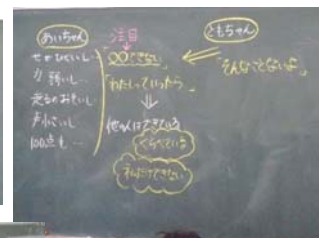 めいちゃん
せがひくいし…
力弱いし…
走るのおそいし…
声小さいし…
100点も…
注目
〇〇できない
「わたしっていったら」
⇓
他の人はできている
くらべている
私だけできない
ともちゃん
「そんなことないよ」